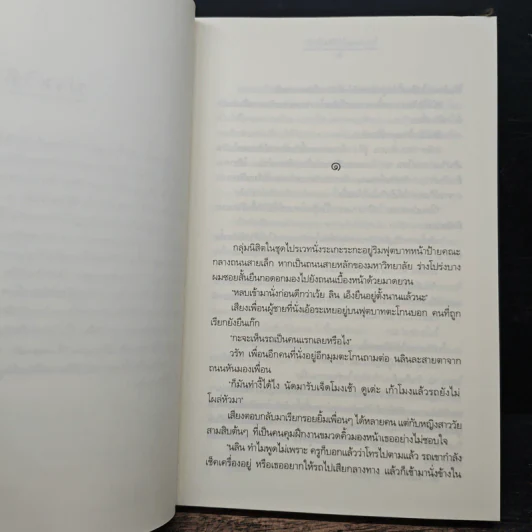 ๑
กลุ่มนิสิตในชุดไปรเวทนั่งระเกะระกะอยู่ริมฟุตบาทหน้าป้ายคณะ
กลางถนนสายเล็ก หากเป็นถนนสายหลักของมหาวิทยาลัย ร่างโปร่งบาง
ผมซอยสั้นยืนกอดอกมองไปยังถนนเบื้องหน้าด้วยมาดยวน
'หลบเข้ามานั่งก่อนดีกว่าเว้ย ลิน เอ็งยืนอยู่ตั้งนานแล้วนะ'
เสียงเพื่อนผู้ชายที่นั่งเอ้อระเหยอยู่บนฟุตบาทตะโกนบอก คนที่ถูก
เรียกยังยืนกึ๊ก
'กะจะเห็นรถเป็นคนแรกเลยหรือไง'
วรัท เพื่อนอีกคนที่นั่งอยู่อีกมุมตะโกนถามต่อ นลินละสายตาจาก
ถนนหันมองเพื่อน
'ก็มันทำงี้ได้ไง นัดมารับเจ็ดโมงเช้า ดูเด่ะ เก้าโมงแล้วรถยังไม่
โผล่หัวมา'
เสียงตอบกลับมาเรียกรอยยิ้มเพื่อนๆ ได้หลายคน แต่กับหญิงสาววัย
สามสิบต้นๆ ที่เป็นคนคุมฝึกงานขมวดคิ้วมองหน้าเธออย่างไม่ชอบใจ
'นลิน ทำไมพูดไม่เพราะ ครูก็บอกแล้วว่าโทรไปตามแล้ว รถเขากำลัง
เช็คเครื่องอยู่ หรือเธออยากให้รถไปเสียกลางทาง แล้วก็เข้ามานั่งข้างใน